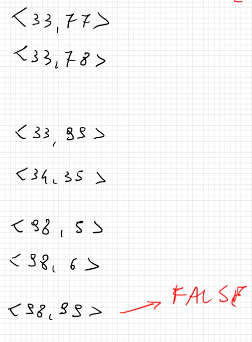 <33,77>
<33,78>
<33,99>
<34,35>
<98,5>
<98,6>
<98,99> → FALSE